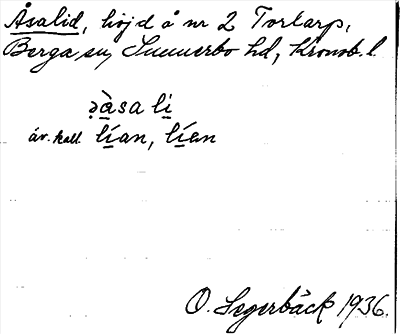 Åsalid, höjd å nr 2 Torlarp,
Berga sn, Sunnerbo hd, Kronob. l.
ə̣à̱sa li̱
äv. kall. lí̱an, lí̱en
O. Segerbäck 1936.